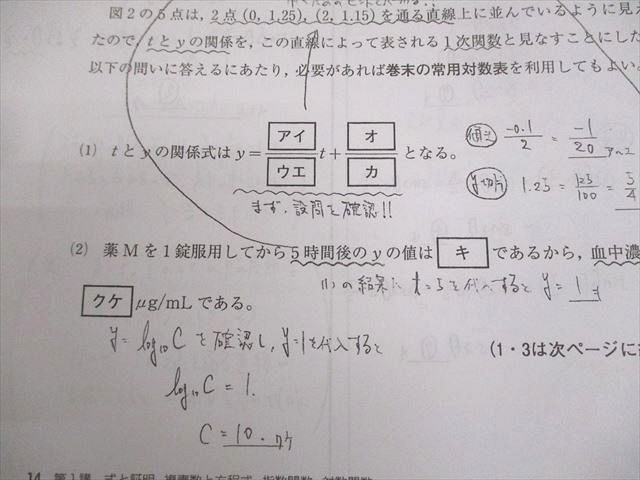 図2の5点は，2点(0, 1.25)，(2, 1.15)を通る直線上に並んでいるように見え
たので，tとyの関係を，この直線によって表される1次関数と見なすことにした
以下の問いに答えるにあたり，必要があれば巻末の常用対数表を利用してもよい。
(1) tとyの関係式は y= アイ/ウエ t+ オ/カ となる。
傾き -0.1/2 = -1/20
まず、設問を確認!!
y切片 1.25 = 125/100 = 5/4
(2) 薬Mを1錠服用してから5時間後のyの値は キ であるから，血中濃
(1)の結果に t=5を代入すると y= 1
クケ μg/mLである。
y= log₁₀C を確認し、y=1を代入すると
(1・3は次ページに
log₁₀C = 1.
C = 10.
14 第1講 式と証明，複素数と方程式，指数関数・対数関数